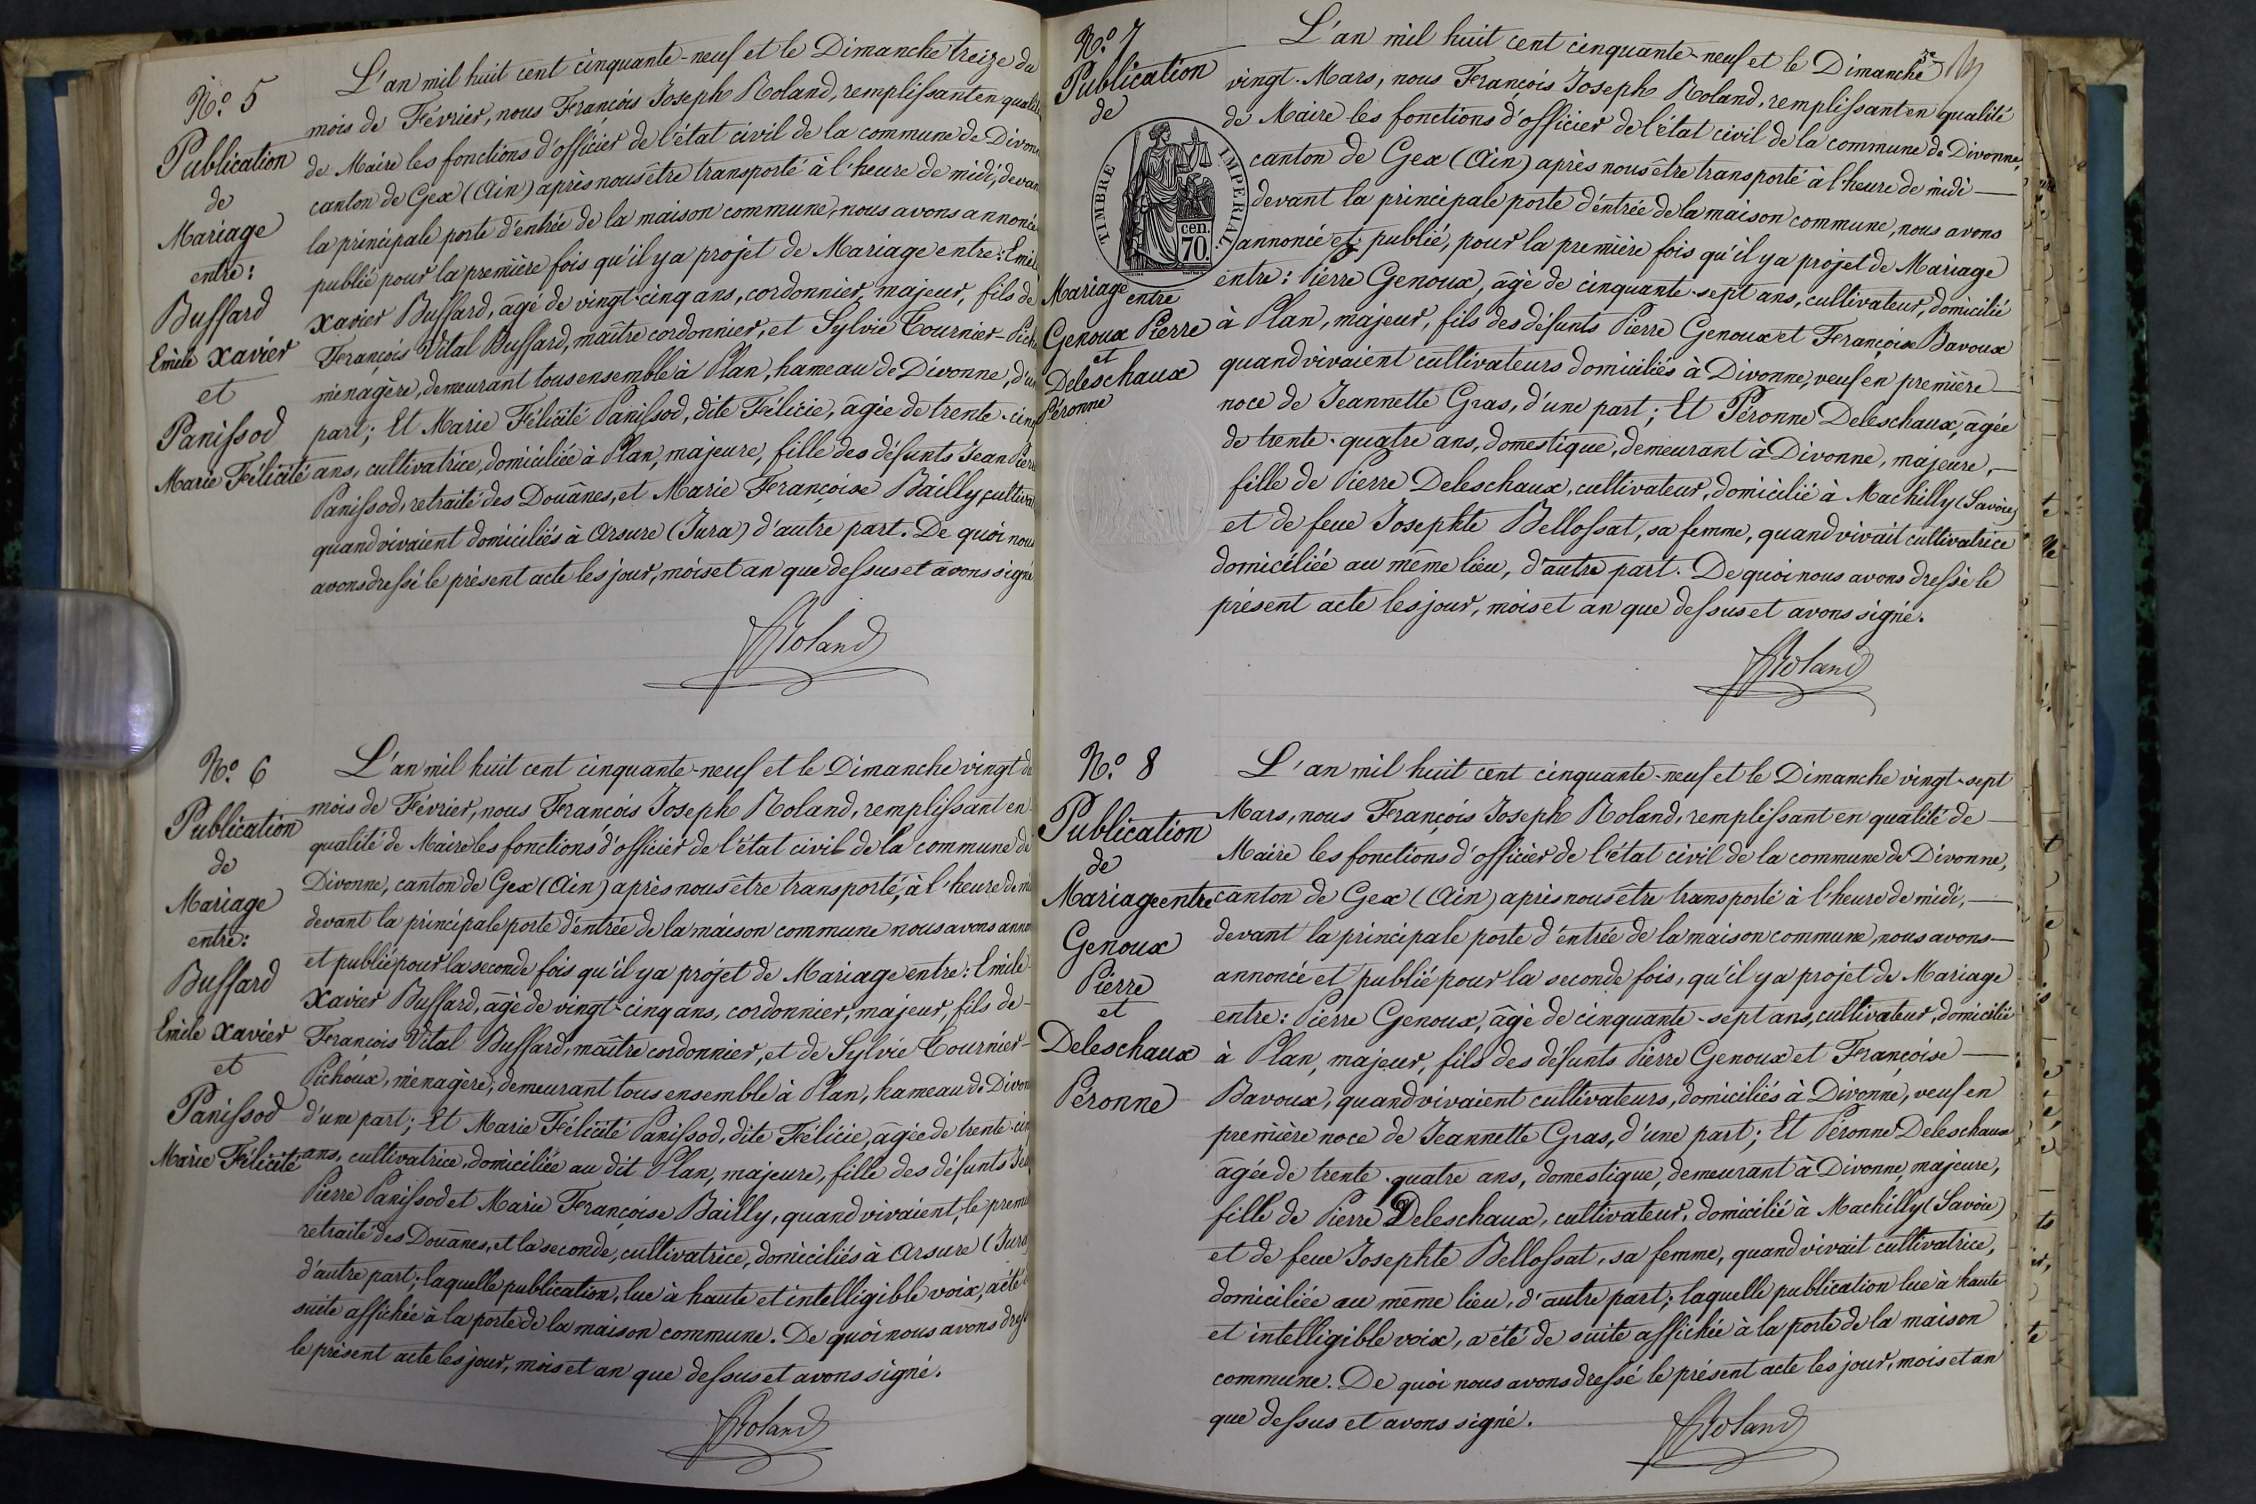 N.º 5
Publication
de
Mariage
entre:
Buffard
Emile Xavier
et
Panissod
Marie Félicité
L'an mil huit cent cinquante-neuf et le Dimanche treize du
mois de Février, nous François Joseph Roland, remplissant en qualité
de Maire les fonctions d'officier de l'état civil de la commune de Divonne
canton de Gex (Ain) après nous être transporté à l'heure de midi, devant
la principale porte d'entrée de la maison commune, nous avons annoncé
publié pour la première fois qu'il y a projet de Mariage entre: Emile
Xavier Buffard, âgé de vingt-cinq ans, cordonnier, majeur, fils de
François Vital Buffard, maître cordonnier, et Sylvie Tournier-Picho
ménagère, demeurant tous ensemble à Plan, hameau de Divonne, d'une
part; Et Marie Félicité Panissod, dite Félicie, âgée de trente-cinq
ans, cultivatrice, domiciliée à Plan, majeure, fille des défunts Jean Pierre
Panissod, retraité des Douânes, et Marie Françoise Bailly, cultivat
quand vivaient domiciliés à Arsure (Jura) d'autre part. De quoi nous
avons dressé le présent acte les jour, mois et an que dessus et avons signé
JRoland
N.º 6
Publication
de
Mariage
entre:
Buffard
Emile Xavier
et
Panissod
Marie Félicité
L'an mil huit cent cinquante-neuf et le Dimanche vingt du
mois de Février, nous François Joseph Roland, remplissant en
qualité de Maire les fonctions d'officier de l'état civil de la commune de
Divonne, canton de Gex (Ain) après nous être transporté, à l'heure de mi
devant la principale porte d'entrée de la maison commune nous avons annon
et publié pour la seconde fois qu'il y a projet de Mariage entre: Emile
Xavier Buffard, âgé de vingt-cinq ans, cordonnier, majeur, fils de
François Vital Buffard, maître cordonnier, et de Sylvie Tournier-
Pichoux, ménagère, demeurant tous ensemble à Plan, hameau de Divon
d'une part; Et Marie Félicité Panissod, dite Félicie, âgée de trente-cinq
ans, cultivatrice, domiciliée au dit Plan, majeure, fille des défunts Jea
Pierre Panissod et Marie Françoise Bailly, quand vivaient, le premie
retraité des Douânes, et la seconde, cultivatrice, domiciliés à Arsure (Jura)
d'autre part; laquelle publication, lue à haute et intelligible voix, a été
suite affichée à la porte de la maison commune. De quoi nous avons dressé
le présent acte les jour, mois et an que dessus et avons signé.
JRoland
N.º 7
Publication
de
TIMBRE IMPERIAL
cen.
70.
Mariage entre
Genoux Pierre
et
Deleschaux
Péronne
L'an mil huit cent cinquante-neuf et le Dimanche
vingt Mars, nous François Joseph Roland, remplissant en qualité
de Maire les fonctions d'officier de l'état civil de la commune de Divonne,
canton de Gex (Ain) après nous être transporté à l'heure de midi
devant la principale porte d'entrée de la maison commune, nous avons
annoncé et publié, pour la première fois qu'il y a projet de Mariage
entre: Pierre Genoux, âgé de cinquante-sept ans, cultivateur, domicilié
à Plan, majeur, fils des défunts Pierre Genoux et Françoise Bavoux
quand vivaient cultivateurs domiciliés à Divonne, veuf en première
noce de Jeannette Gras, d'une part; Et Péronne Deleschaux, âgée
de trente-quatre ans, domestique, demeurant à Divonne, majeure,
fille de Pierre Deleschaux, cultivateur, domicilié à Machilly (Savoie)
et de feue Josephte Bellossat, sa femme, quand vivait cultivatrice
domiciliée au même lieu, d'autre part. De quoi nous avons dressé le
présent acte les jour, mois et an que dessus et avons signé.
JRoland
N.º 8
Publication
de
Mariage entre
Genoux
Pierre
et
Deleschaux
Péronne
L'an mil huit cent cinquante-neuf et le Dimanche vingt-sept
Mars, nous François Joseph Roland, remplissant en qualité de
Maire les fonctions d'officier de l'état civil de la commune de Divonne,
canton de Gex (Ain) après nous être transporté à l'heure de midi,
devant la principale porte d'entrée de la maison commune, nous avons
annoncé et publié pour la seconde fois, qu'il y a projet de Mariage
entre: Pierre Genoux, âgé de cinquante-sept ans, cultivateur, domicilié
à Plan, majeur, fils des défunts Pierre Genoux et Françoise
Bavoux, quand vivaient cultivateurs, domiciliés à Divonne, veuf en
première noce de Jeannette Gras, d'une part; Et Péronne Deleschaux
âgée de trente-quatre ans, domestique, demeurant à Divonne, majeure,
fille de Pierre Deleschaux, cultivateur, domicilié à Machilly (Savoie)
et de feue Josephte Bellossat, sa femme, quand vivait cultivatrice,
domiciliée au même lieu, d'autre part; laquelle publication lue à haute
et intelligible voix, a été de suite affichée à la porte de la maison
commune. De quoi nous avons dressé le présent acte les jour, mois et an
que dessus et avons signé.
JRoland